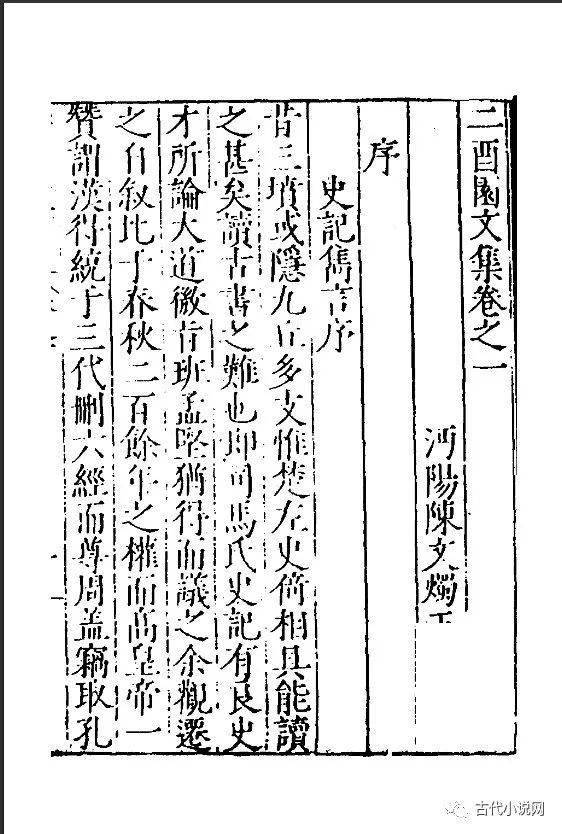 二酉園文集卷之一
沔陽陳文燭
序
史記雋言序
昔三墳或隱九丘多文惟楚左史倚相具能讀
之甚矣讀古書之難也即司馬氏史記有良史
才所論大道徵旨班孟堅猶得而議之余觀遷
之自叙比于春秋二百餘年之權而高皇帝一
贊謂漢得統于三代刪六經而尊周盖竊取孔
古代小说网